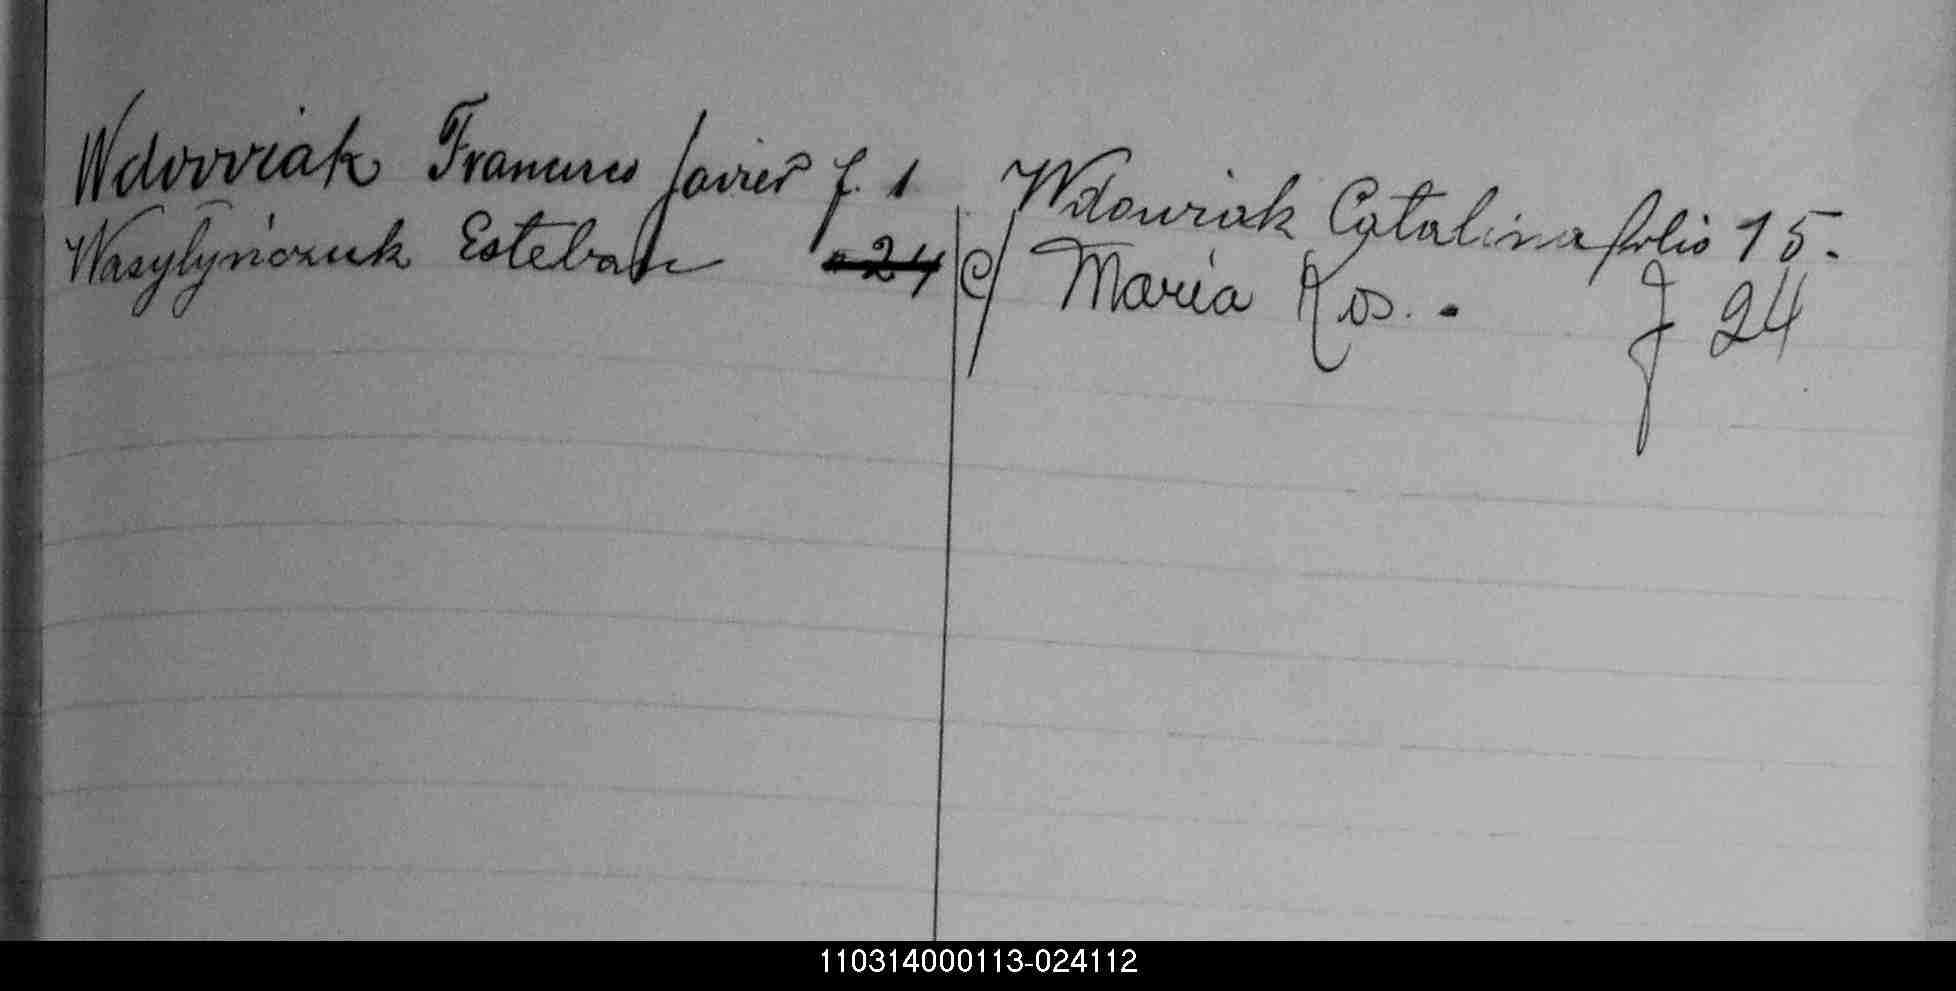 Wdowiak Francisco Javier f. 1
Wasylyńczuk Esteban 24 c/ Maria Kos. - f 24
Wdowiak Catalina folio 15.
110314000113-024112